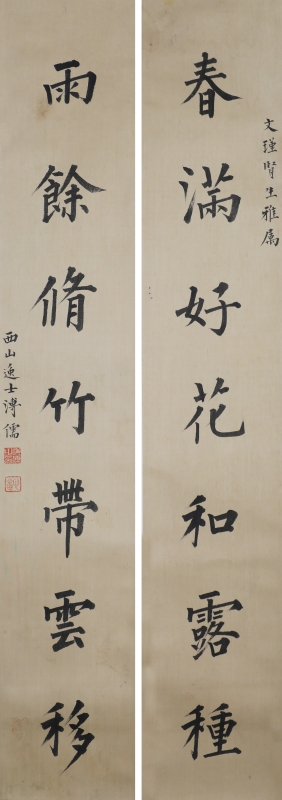 文瑾賢生雅屬
春滿好花和露種
雨餘脩竹帶雲移
西山逸士溥儒